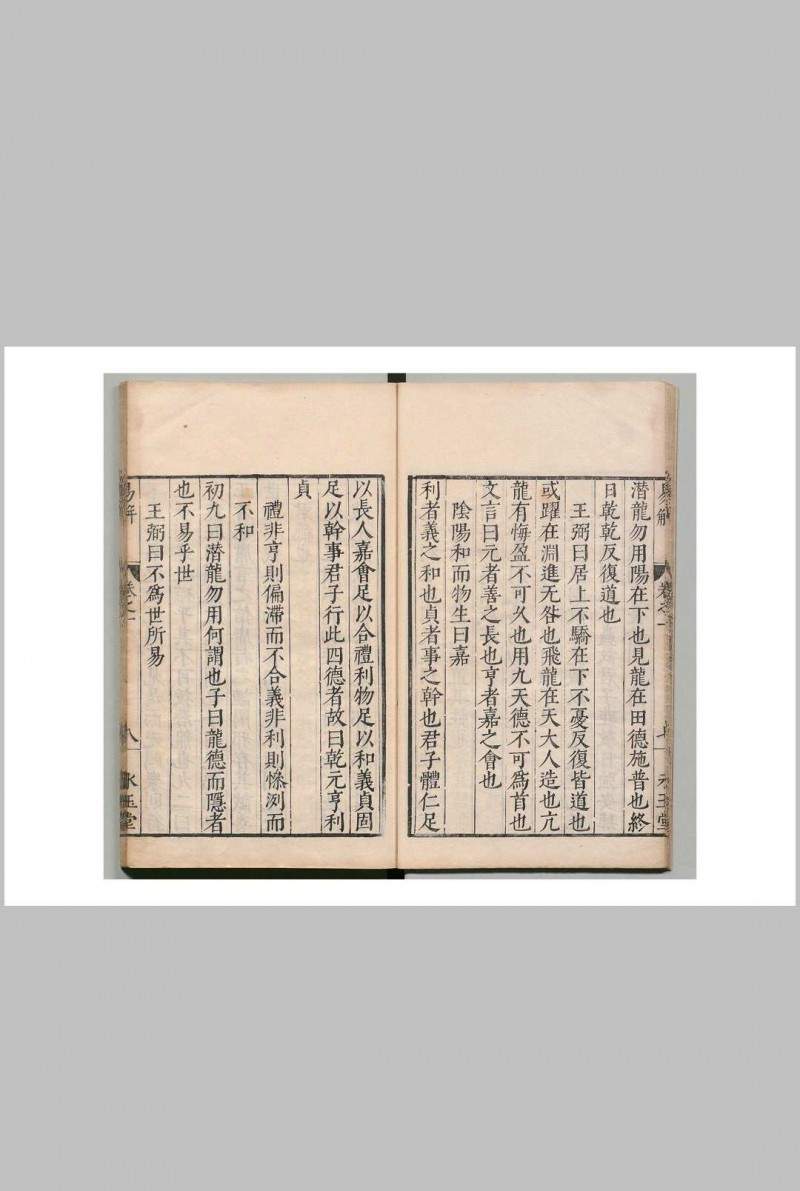 易解 卷之一 七 永玉堂
潛龍勿用陽在下也見龍在田德施普也終
日乾乾反復道也
王弼曰居上不驕在下不憂反復皆道也
或躍在淵進无咎也飛龍在天大人造也亢
龍有悔盈不可久也用九天德不可爲首也
文言曰元者善之長也亨者嘉之會也
陰陽和而物生曰嘉
利者義之和也貞者事之幹也君子體仁足
以長人嘉會足以合禮利物足以和義貞固
足以幹事君子行此四德者故曰乾元亨利
貞
禮非亨則偏滯而不合義非利則慘洌而
不和
初九曰潛龍勿用何謂也子曰龍德而隱者
也不易乎世
王弼曰不爲世所易
易解 卷之一 八 永玉堂